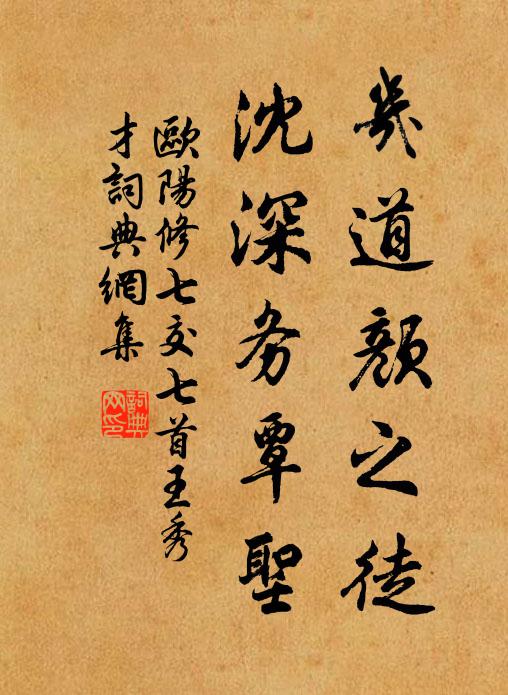 幾道顏之徒
沈深务覃聖
歐陽修七交七首王秀
才詞典網集
詞典网印